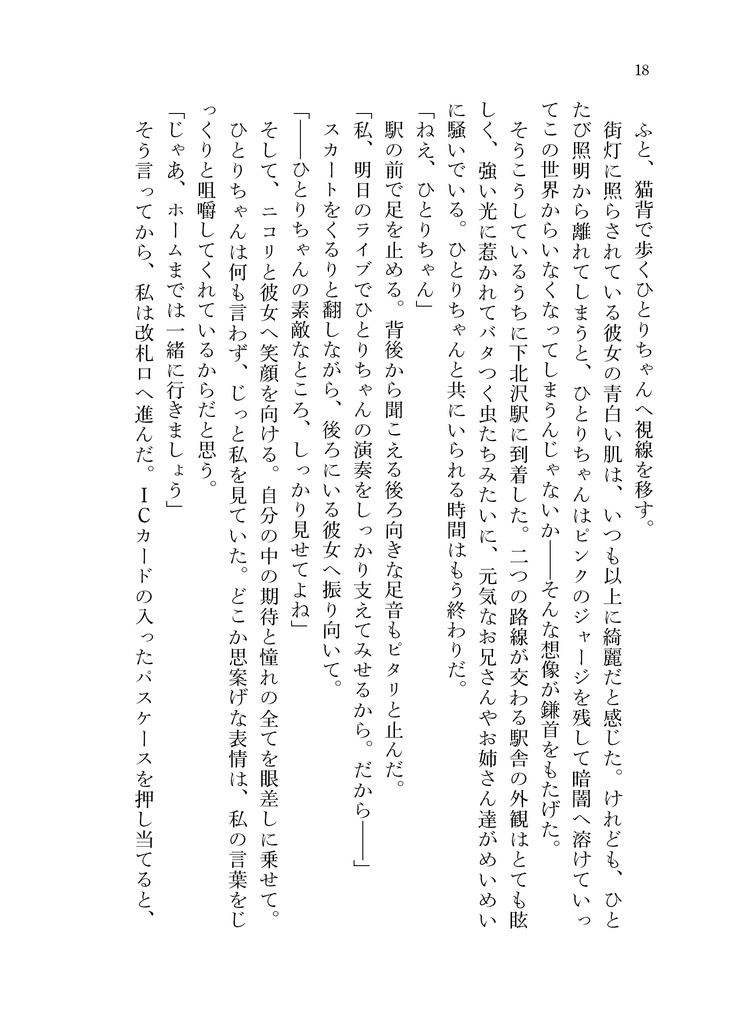 18
ふと、猫背で歩くひとりちゃんへ視線を移す。
街灯に照らされている彼女の青白い肌は、いつも以上に綺麗だと感じた。けれども、ひと
たび照明から離れてしまうと、ひとりちゃんはピンクのジャージを残して暗闇へ溶けていっ
てこの世界からいなくなってしまうんじゃないか――そんな想像が鎌首をもたげた。
そうこうしているうちに下北沢駅に到着した。二つの路線が交わる駅舎の外観はとても眩
しく、強い光に惹かれてバタつく虫たちみたいに、元気なお兄さんやお姉さん達がめいめい
に騒いでいる。ひとりちゃんと共にいられる時間はもう終わりだ。
「ねえ、ひとりちゃん」
駅の前で足を止める。背後から聞こえる後ろ向きな足音もピタリと止んだ。
「私、明日のライブでひとりちゃんの演奏をしっかり支えてみせるから。だから――」
スカートをくるりと翻しながら、後ろにいる彼女へ振り向いて。
「――ひとりちゃんの素敵なところ、しっかり見せてよね」
そして、ニコリと彼女へ笑顔を向ける。自分の中の期待と憧れの全てを眼差しに乗せて。
ひとりちゃんは何も言わず、じっと私を見ていた。どこか思案げな表情は、私の言葉をじ
っくりと咀嚼してくれているからだと思う。
「じゃあ、ホームまでは一緒に行きましょう」
そう言ってから、私は改札口へ進んだ。ＩＣカードの入ったパスケースを押し当てると、